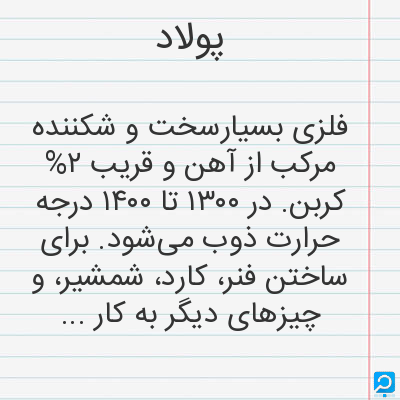 پولاد
فلزی بسیارسخت و شکننده
مرکب از آهن و قریب ۲%
کربن. در ۱۳۰۰ تا ۱۴۰۰ درجه
حرارت ذوب می‌شود. برای
ساختن فنر، کارد، شمشیر، و
چیزهای دیگر به کار ...